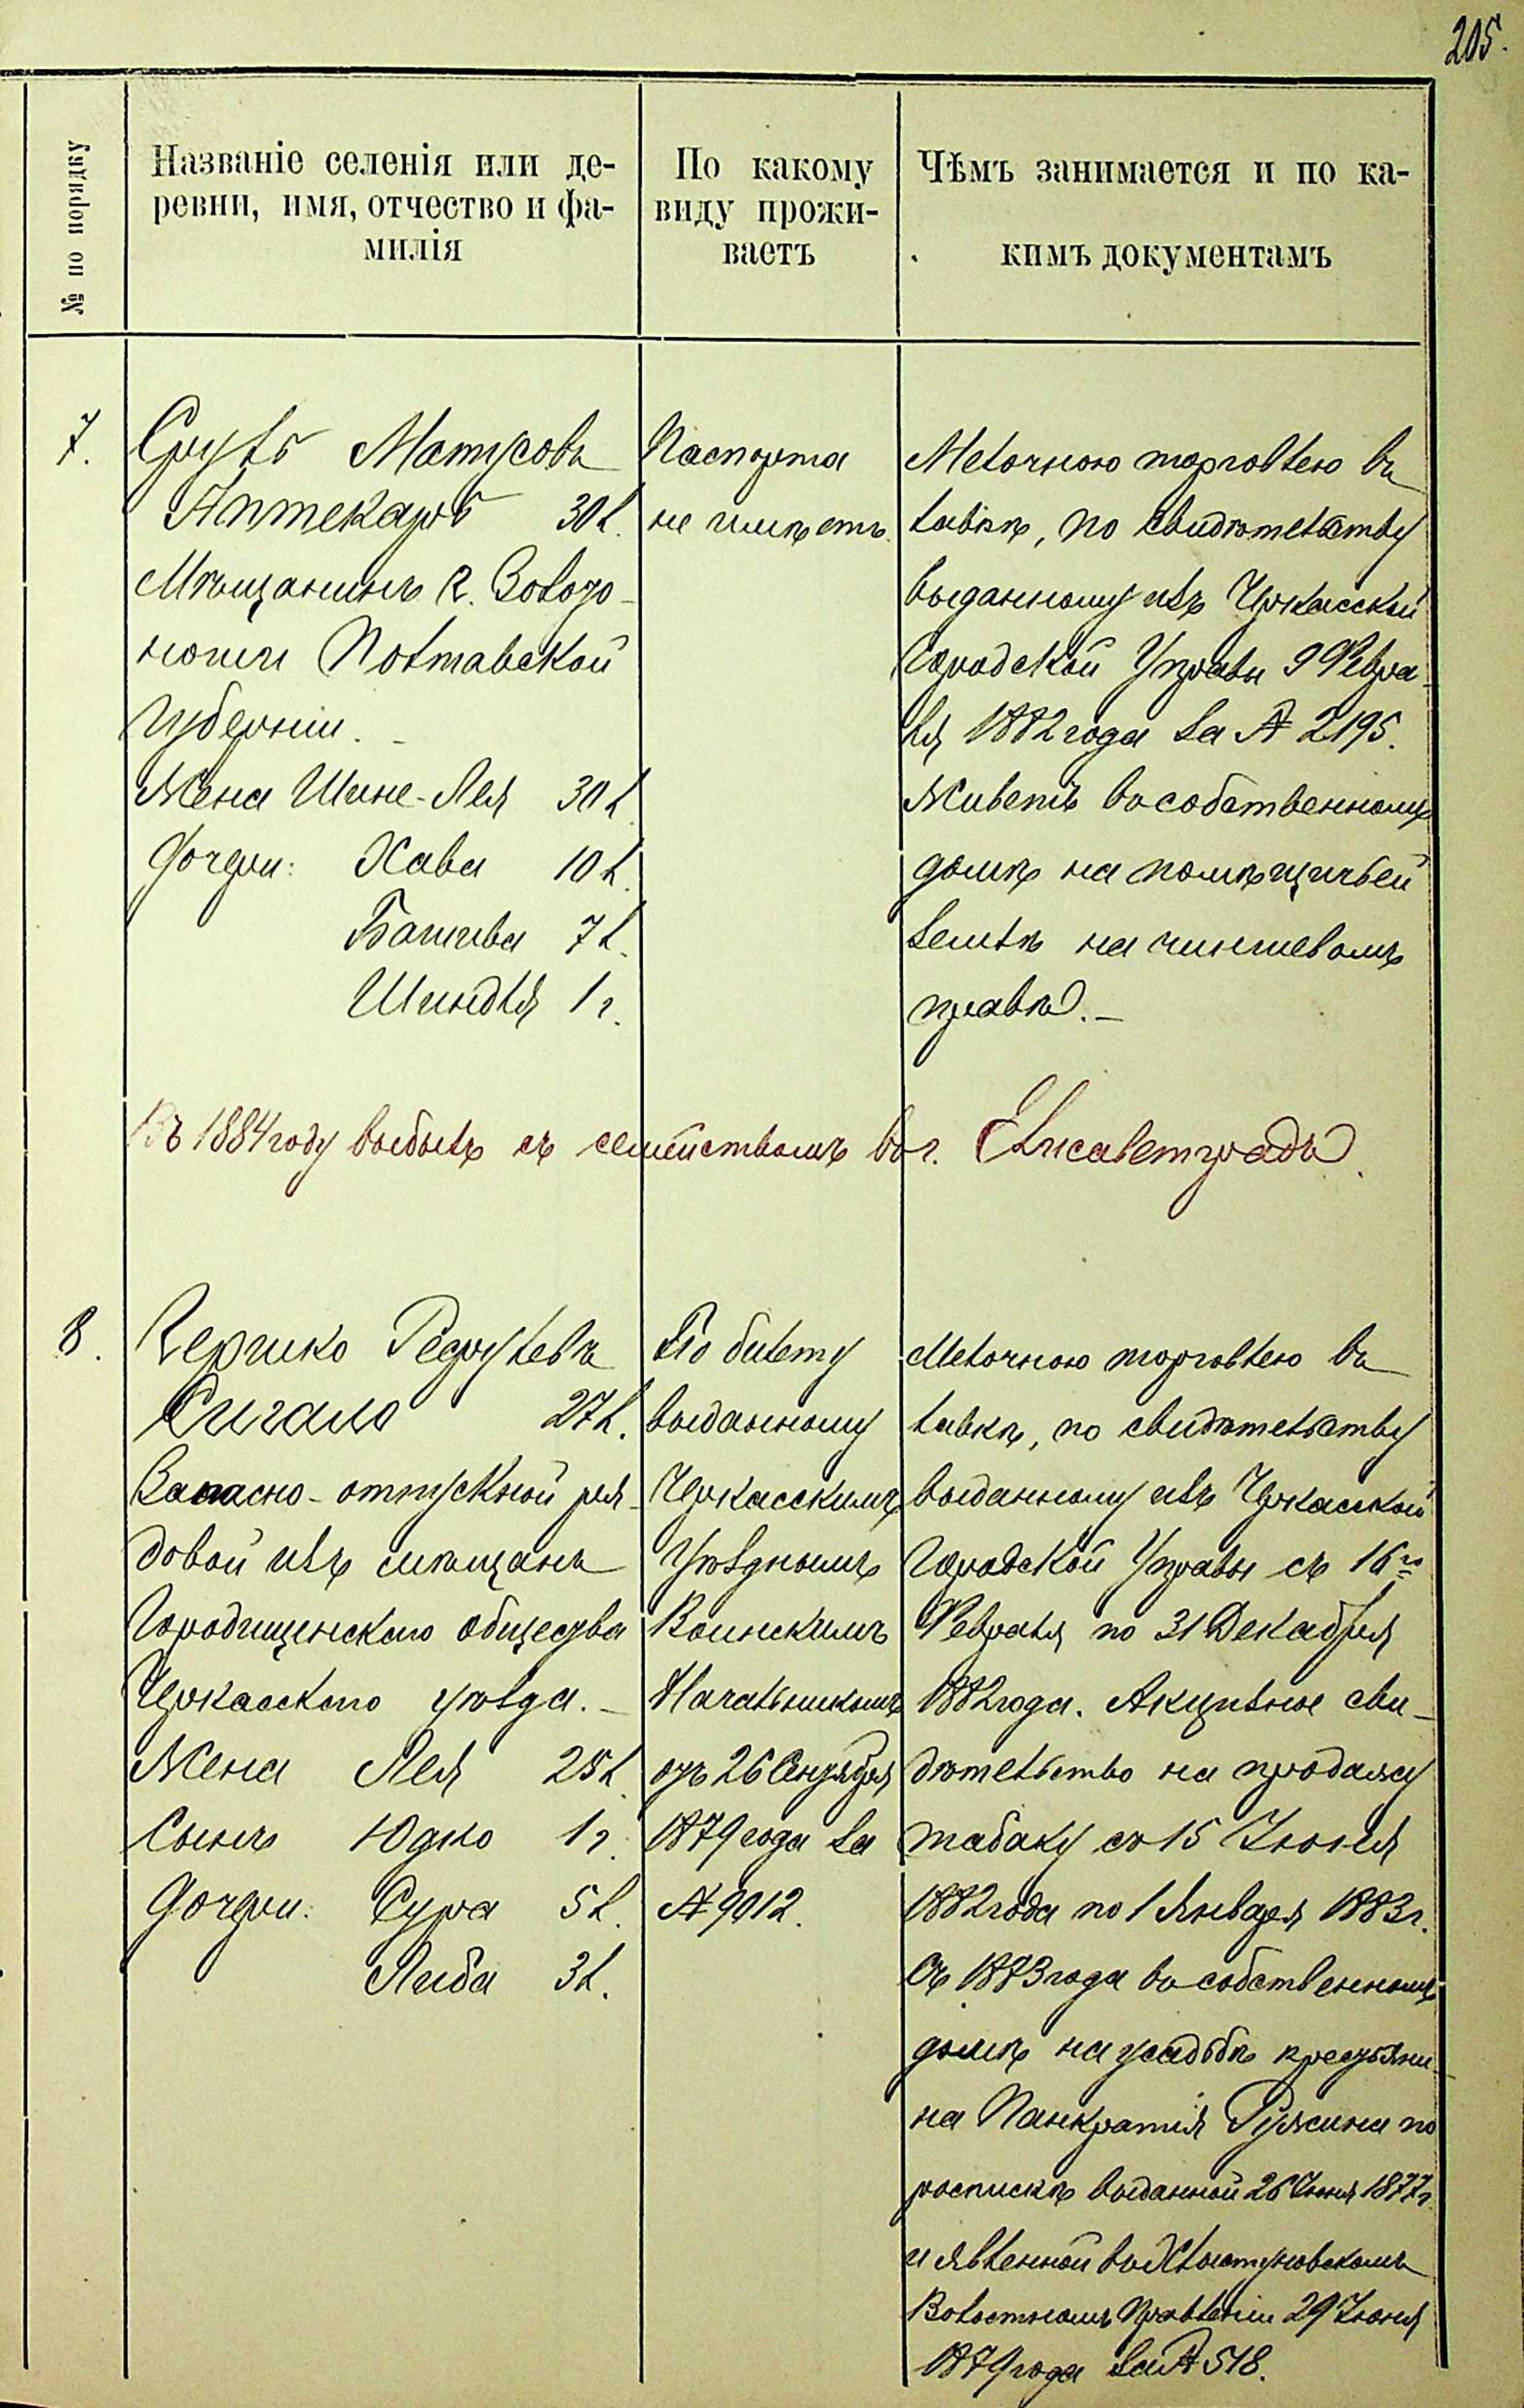 205.
№ по порядку
Названіе селенія или де-
ревни, имя, отчество и фа-
милія
По какому
виду прожи-
ваетъ
Чѣмъ занимается и по ка-
кимъ документамъ
7.
Сруль Матусовъ
Аптекарь 30 л.
Мѣщанинъ г. Золото-
ноши Полтавской
Губерніи. -
Жена Шине-Лея 30 л.
Дочери: Хава 10 л.
Башива 7 л.
Шиндля 1 г.
Паспорта
не имѣетъ.
Мелочною торговлею въ
лавкѣ, по свидѣтельству
выданному изъ Черкасской
Городской Управы 9 Февра-
ля 1882 года за № 2195.
Живетъ въ собственномъ
домѣ на помѣщичьей
землѣ на чиншевомъ
правѣ. -
Въ 1884 году выбылъ съ семействомъ въ г. Елисаветградъ.
8.
Гершко Федулевъ
Сигало 27 л.
Запасно-отпускной ря-
довой изъ мѣщанъ
Городищенскаго общества
Черкасскаго уѣзда. -
Жена Лея 25 л.
Сынъ Юдко 1 г.
Дочери: Сура 5 л.
Либа 3 л.
По билету
выданному
Черкасскимъ
Уѣзднымъ
Воинскимъ
Начальникомъ
отъ 26 Сентября
1879 года за
№ 9012.
Мелочною торговлею въ
лавкѣ, по свидѣтельству
выданному изъ Черкасской
Городской Управы съ 16го
Февраля по 31 Декабря
1882 года. Акцизное сви-
дѣтельство на продажу
табаку съ 15 Іюня
1882 года по 1 Января 1883 г.
Съ 1873 года въ собственномъ
домѣ на усадьбѣ крестьяни-
на Панкратія Ружина по
роспискѣ выданной 26 Іюня 1877 г.
и явленной въ Хлыстуновскомъ
Волостномъ Правленіи 29 Іюня
1879 года за № 518.